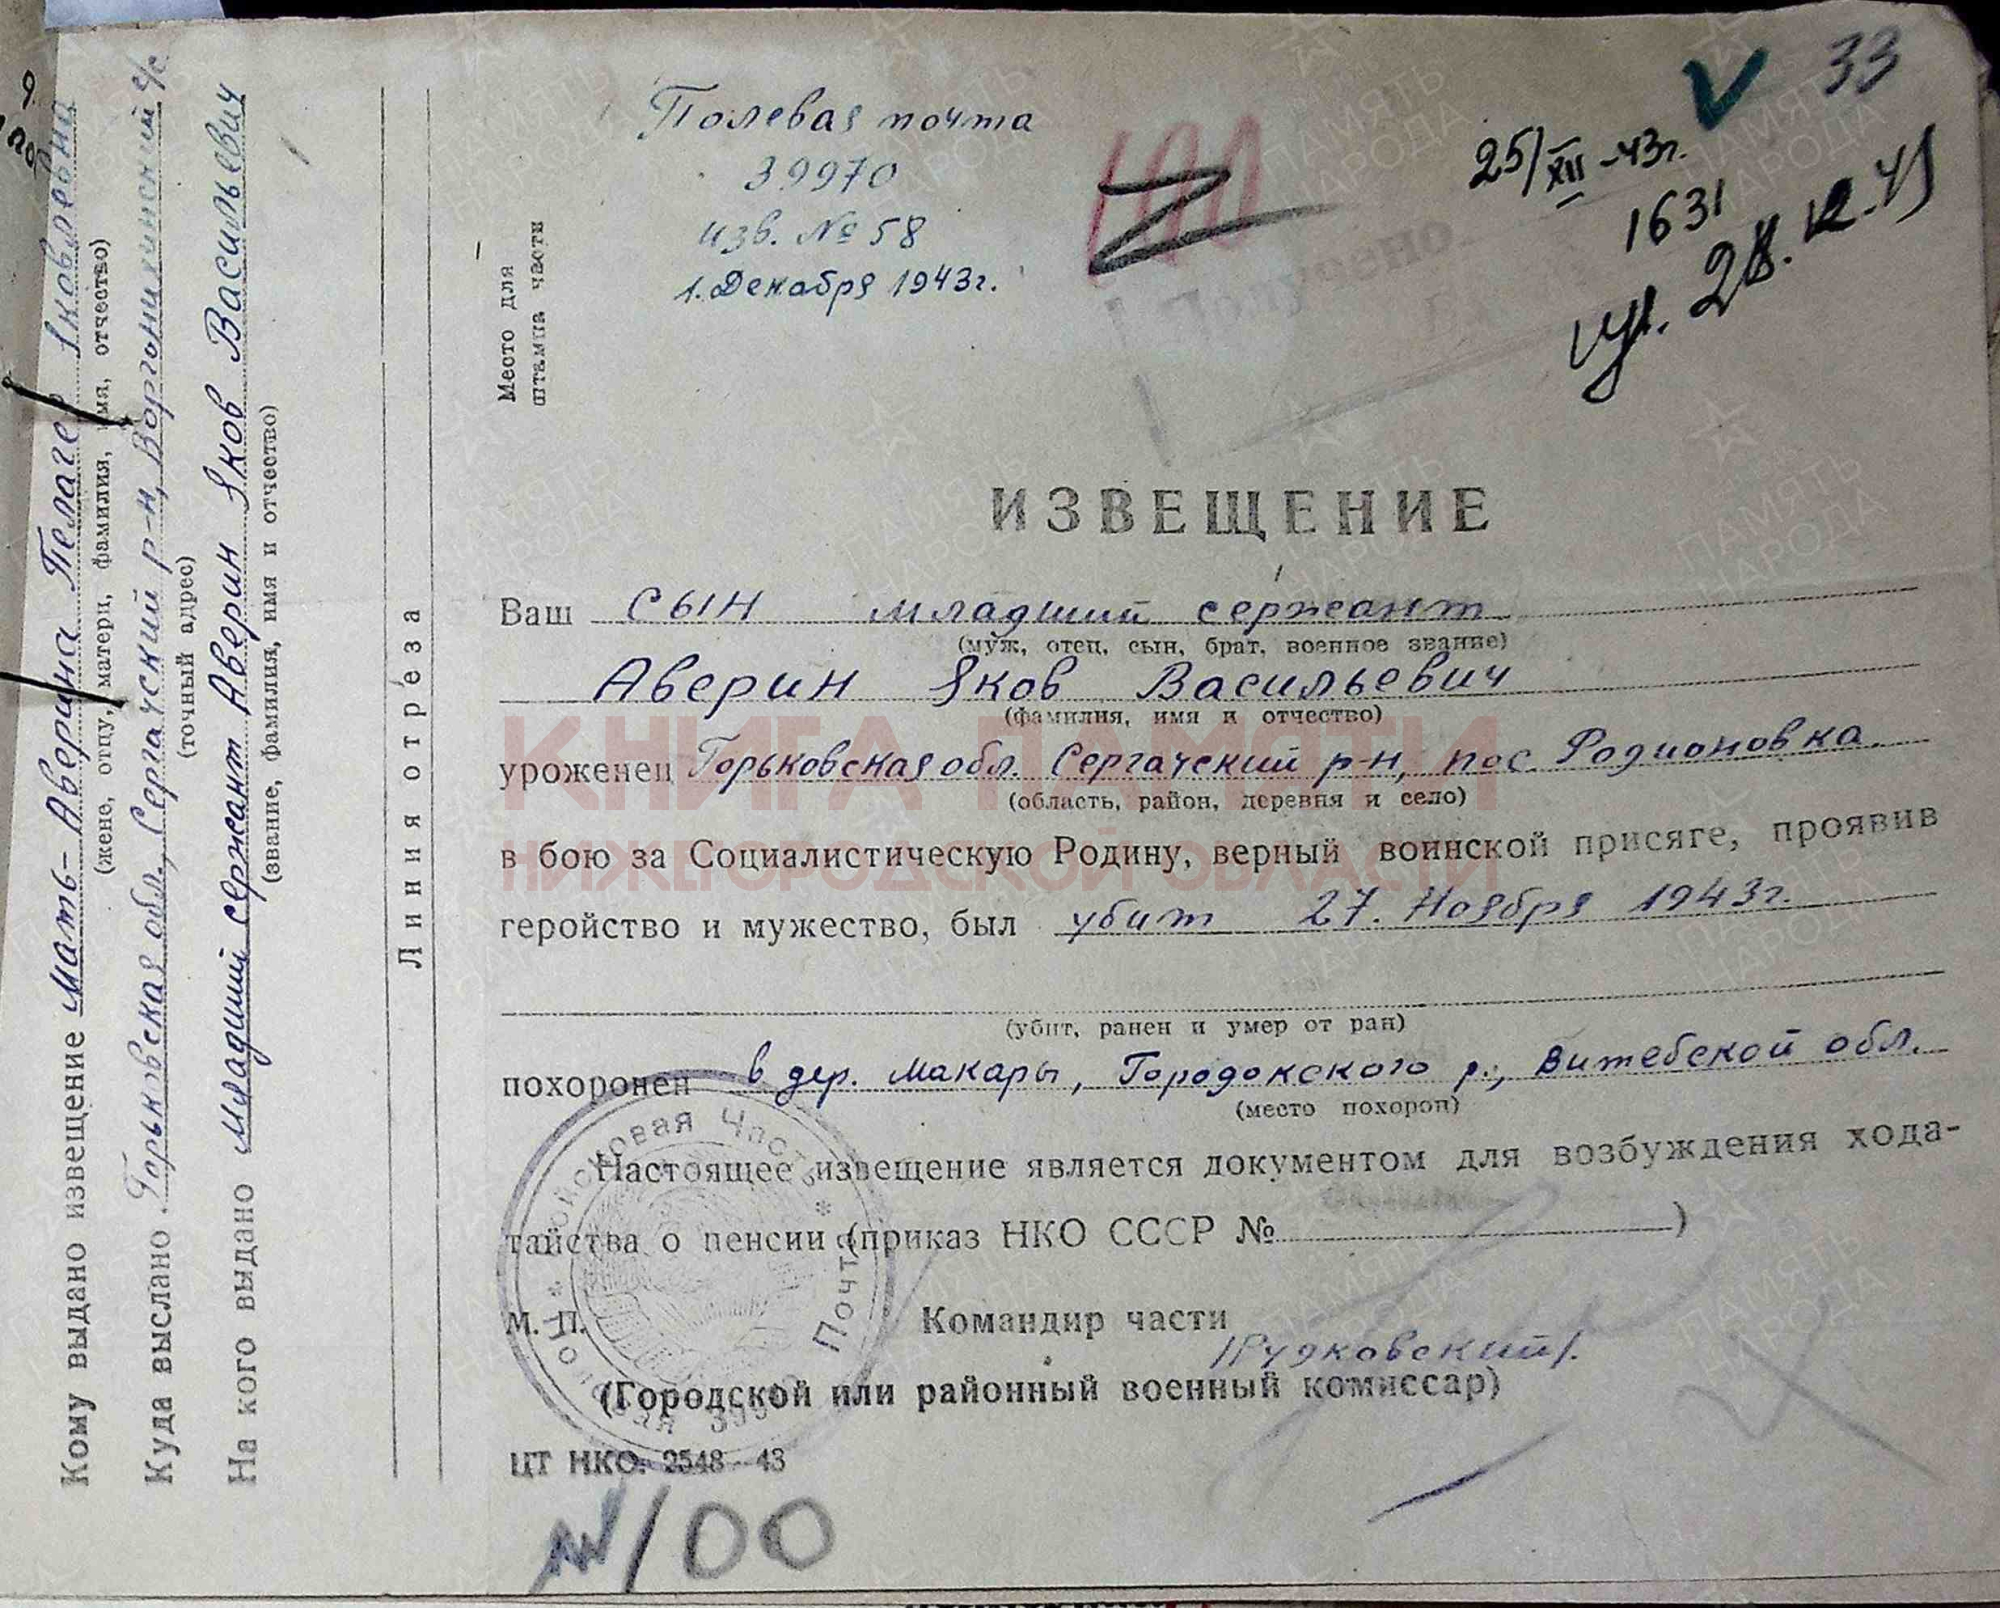 Кому выдано извещение Мать- Аверина Пелагея Яковлевна
(жене, отцу, матери, фамилия, имя, отчество)
Куда выслано Горьковская обл., Сергачский р-н, с/с
(точный адрес)
На кого выдано Младший сержант Аверин Яков Васильевич
(звание, фамилия, имя и отчество)
Линия отреза
Место для
штампа части
Полевая почта
39970
изв. № 58
1. Декабря 1943г.
33
25/XII-43г.
1631
28.12.43
Получено
ИЗВЕЩЕНИЕ
Ваш сын младший сержант
(муж, отец, сын, брат, военное звание)
Аверин Яков Васильевич
(фамилия, имя и отчество)
уроженец Горьковская обл. Сергачский р-н, пос. Родионовка
(область, район, деревня и село)
в бою за Социалистическую Родину, верный воинской присяге, проявив
геройство и мужество, был убит 27. Ноября 1943г.
(убит, ранен и умер от ран)
похоронен в дер. Макары, Городокского р., Витебской обл.
(место похорон)
Настоящее извещение является документом для возбуждения хода-
тайства о пенсии (приказ НКО СССР № )
М. П.
Командир части
/Рудковский/.
(Городской или районный военный комиссар)
ЦТ НКО. 2548—43
Войсковая Часть * Полевая Почта * 39970
№100
КНИГА ПАМЯТИ
НИЖЕГОРОДСКОЙ ОБЛАСТИ
ПАМЯТЬ
НАРОДА